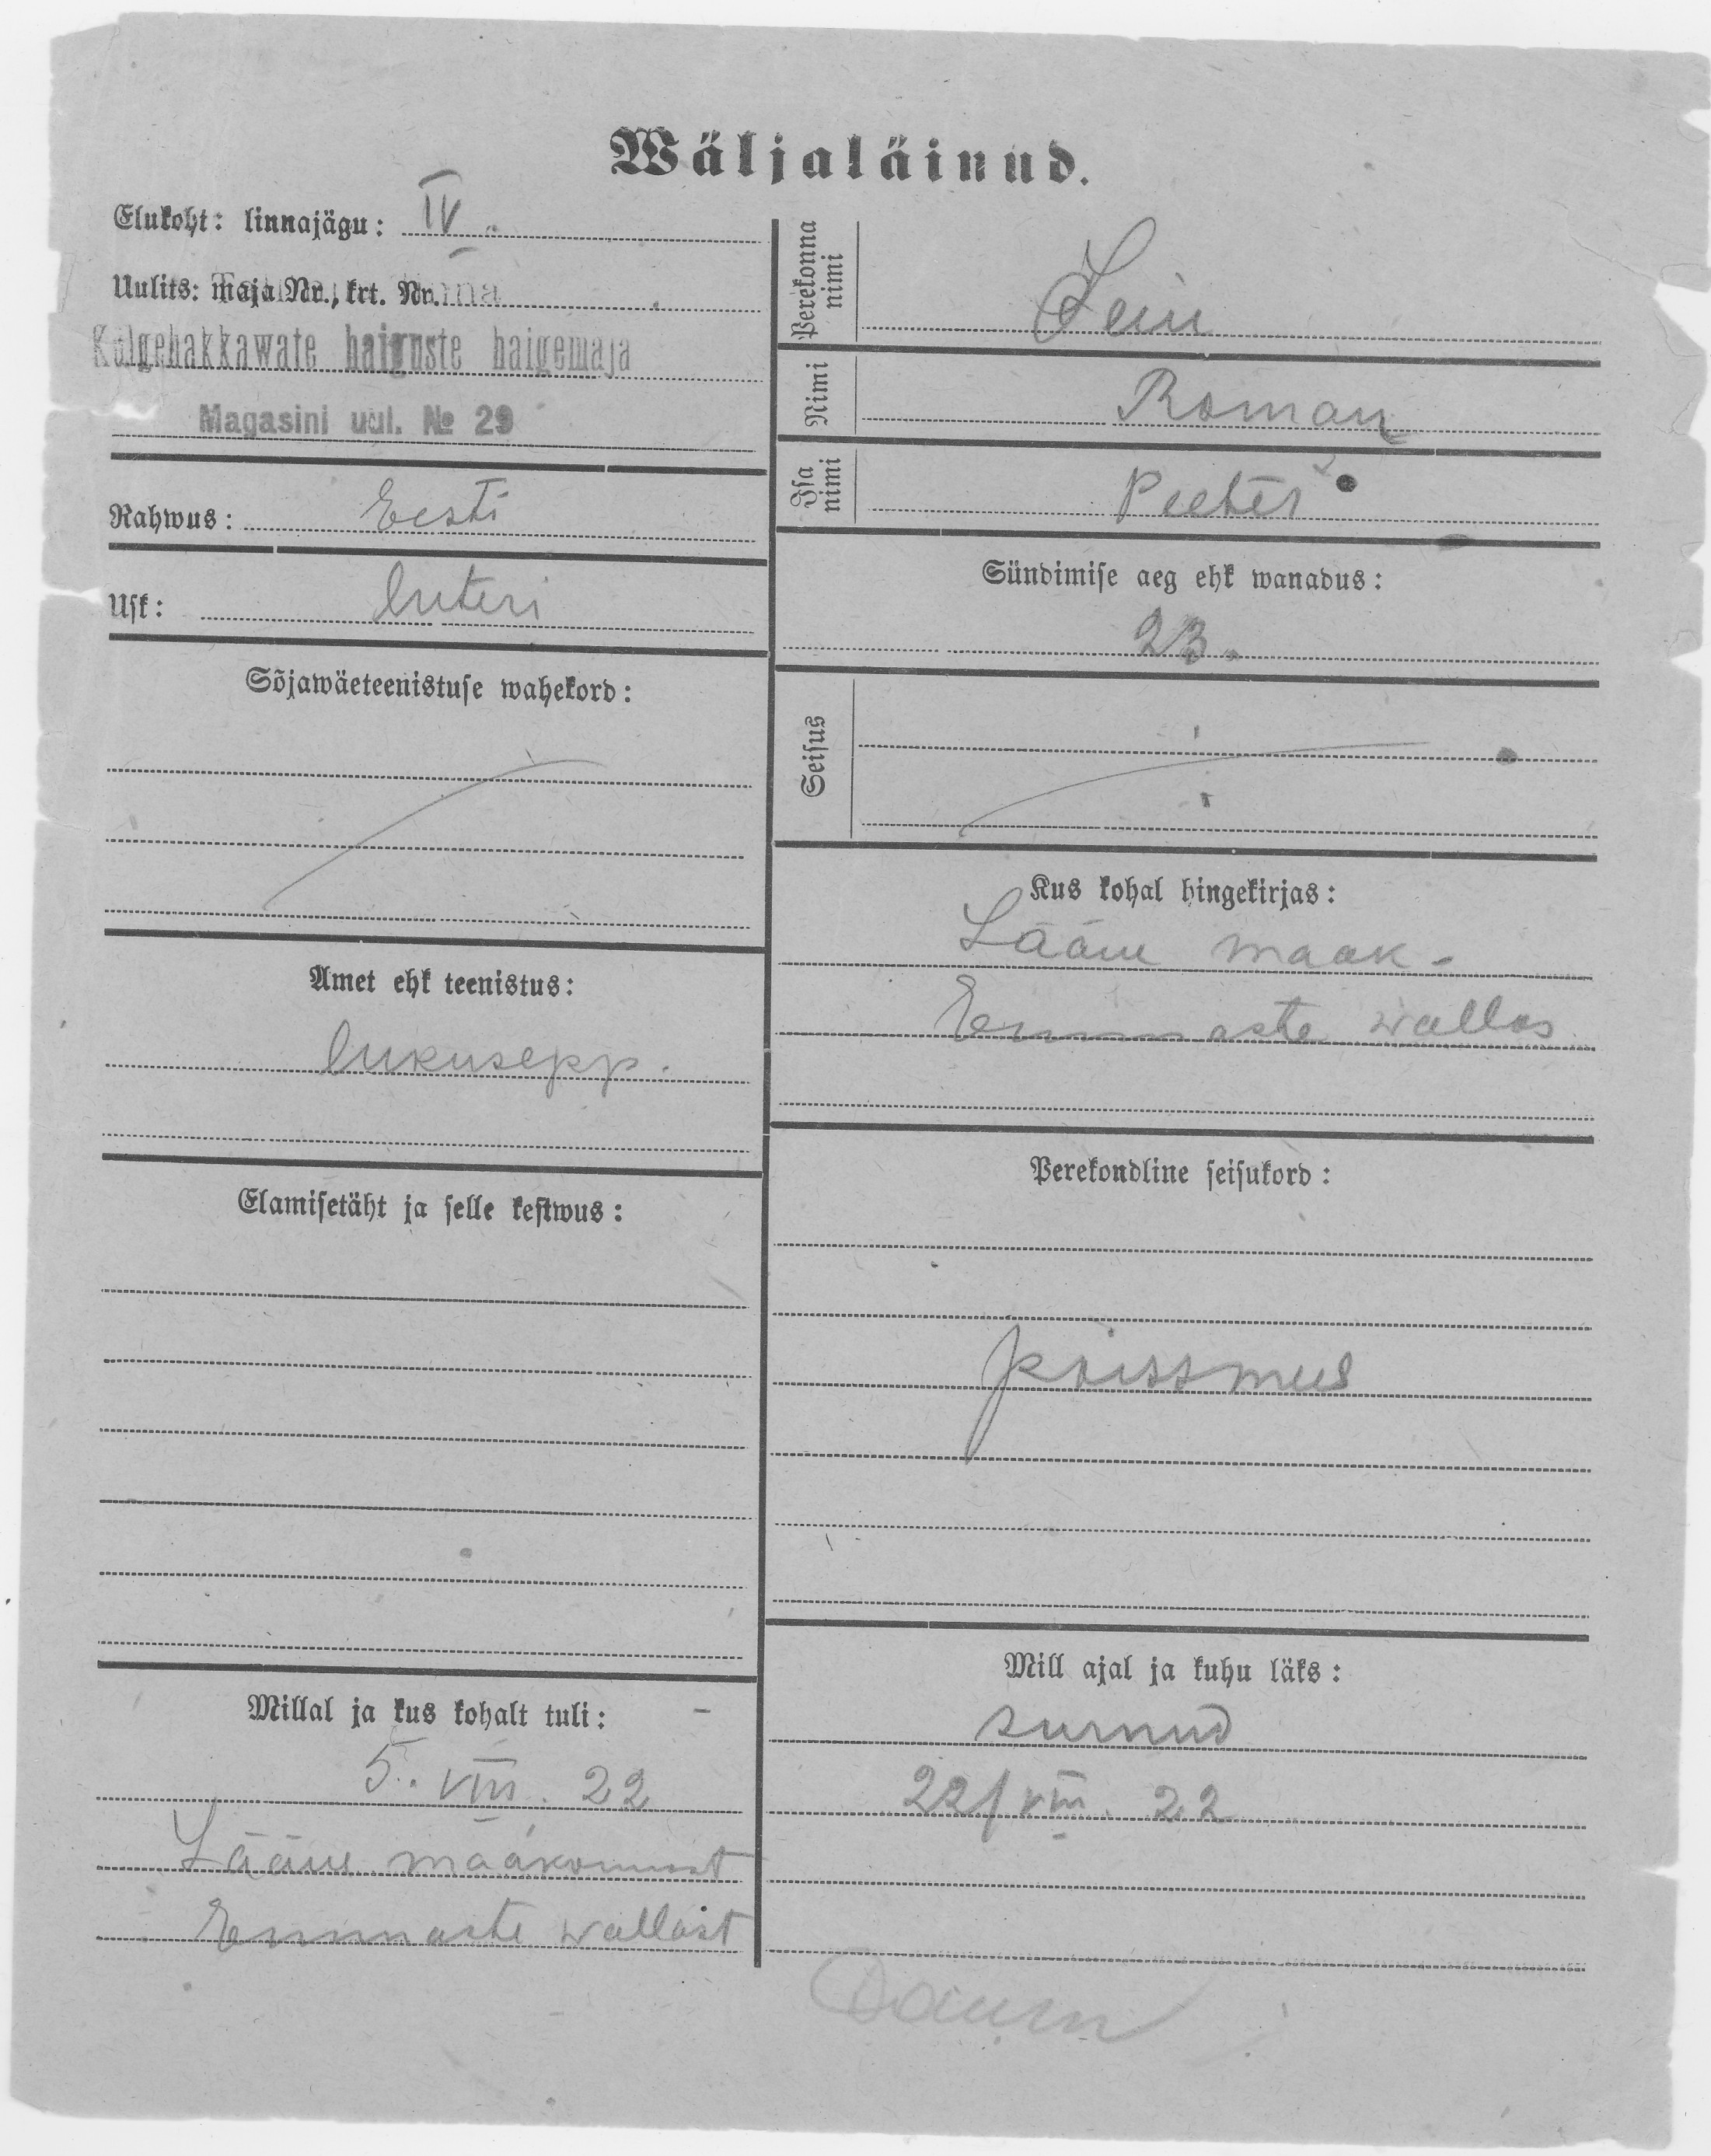 Wäljaläinud.
Elukoht: linnajägu: IV.
Uulits: maja Nr., krt. Nr.
Külgehakkawate haiguste haigemaja
Magasini uul. № 29
Rahwus: Eesti
Usk: luteri
Sõjawäeteenistuse wahekord:
Amet ehk teenistus:
lukusepp.
Elamisetäht ja selle kestwus:
Millal ja kus kohalt tuli: -
5. VIII. 22
Lääne maakonnast
Emmaste wallast
Perekonna nimi
Nimi Roman
Isa nimi Peeter
Sündimise aeg ehk wanadus:
23.
Seisus
Kus kohal hingekirjas:
Lääne maak-
Emmaste wallas
Perekondline seisukord:
poissmees
Mill ajal ja kuhu läks:
surnud
22/VIII. 22